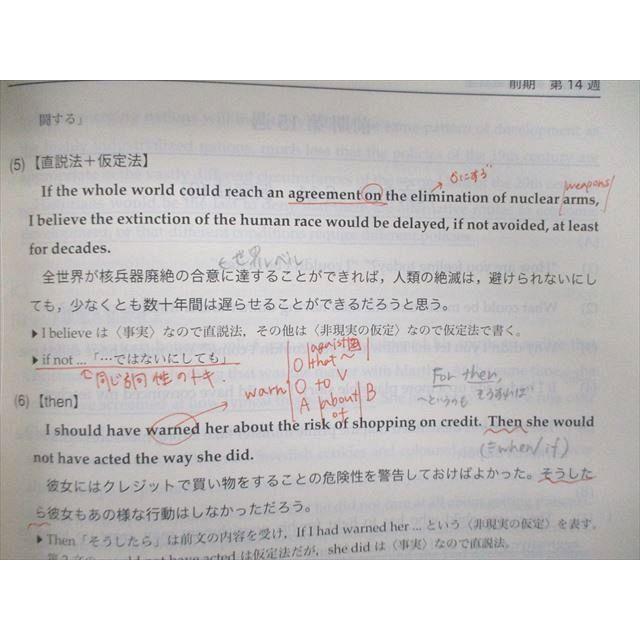 前期 第14週
闘する」
(5)【直説法+仮定法】
0にする
weapons
If the whole world could reach an agreement on the elimination of nuclear arms,
I believe the extinction of the human race would be delayed, if not avoided, at least
for decades.
世界レベル
全世界が核兵器廃絶の合意に達することができれば，人類の絶滅は，避けられないにし
ても，少なくとも数十年間は遅らせることができるだろうと思う。
▶ I believe は〈事実〉なので直説法，その他は〈非現実の仮定〉なので仮定法で書く。
▶ if not …「…ではないにしても」
同じ方向性のトキ.
warn
O that ~
O to V
A about B
of
For then,
そうすれば
(6)【then】
I should have warned her about the risk of shopping on credit. Then she would
not have acted the way she did.
(=when/if)
彼女にはクレジットで買い物をすることの危険性を警告しておけばよかった。そうした
ら彼女もあの様な行動はしなかっただろう。
▶ Then「そうしたら」は前文の内容を受け，If I had warned her … という〈非現実の仮定〉を表す。
have acted は仮定法だが，she did は〈事実〉なので直説法。